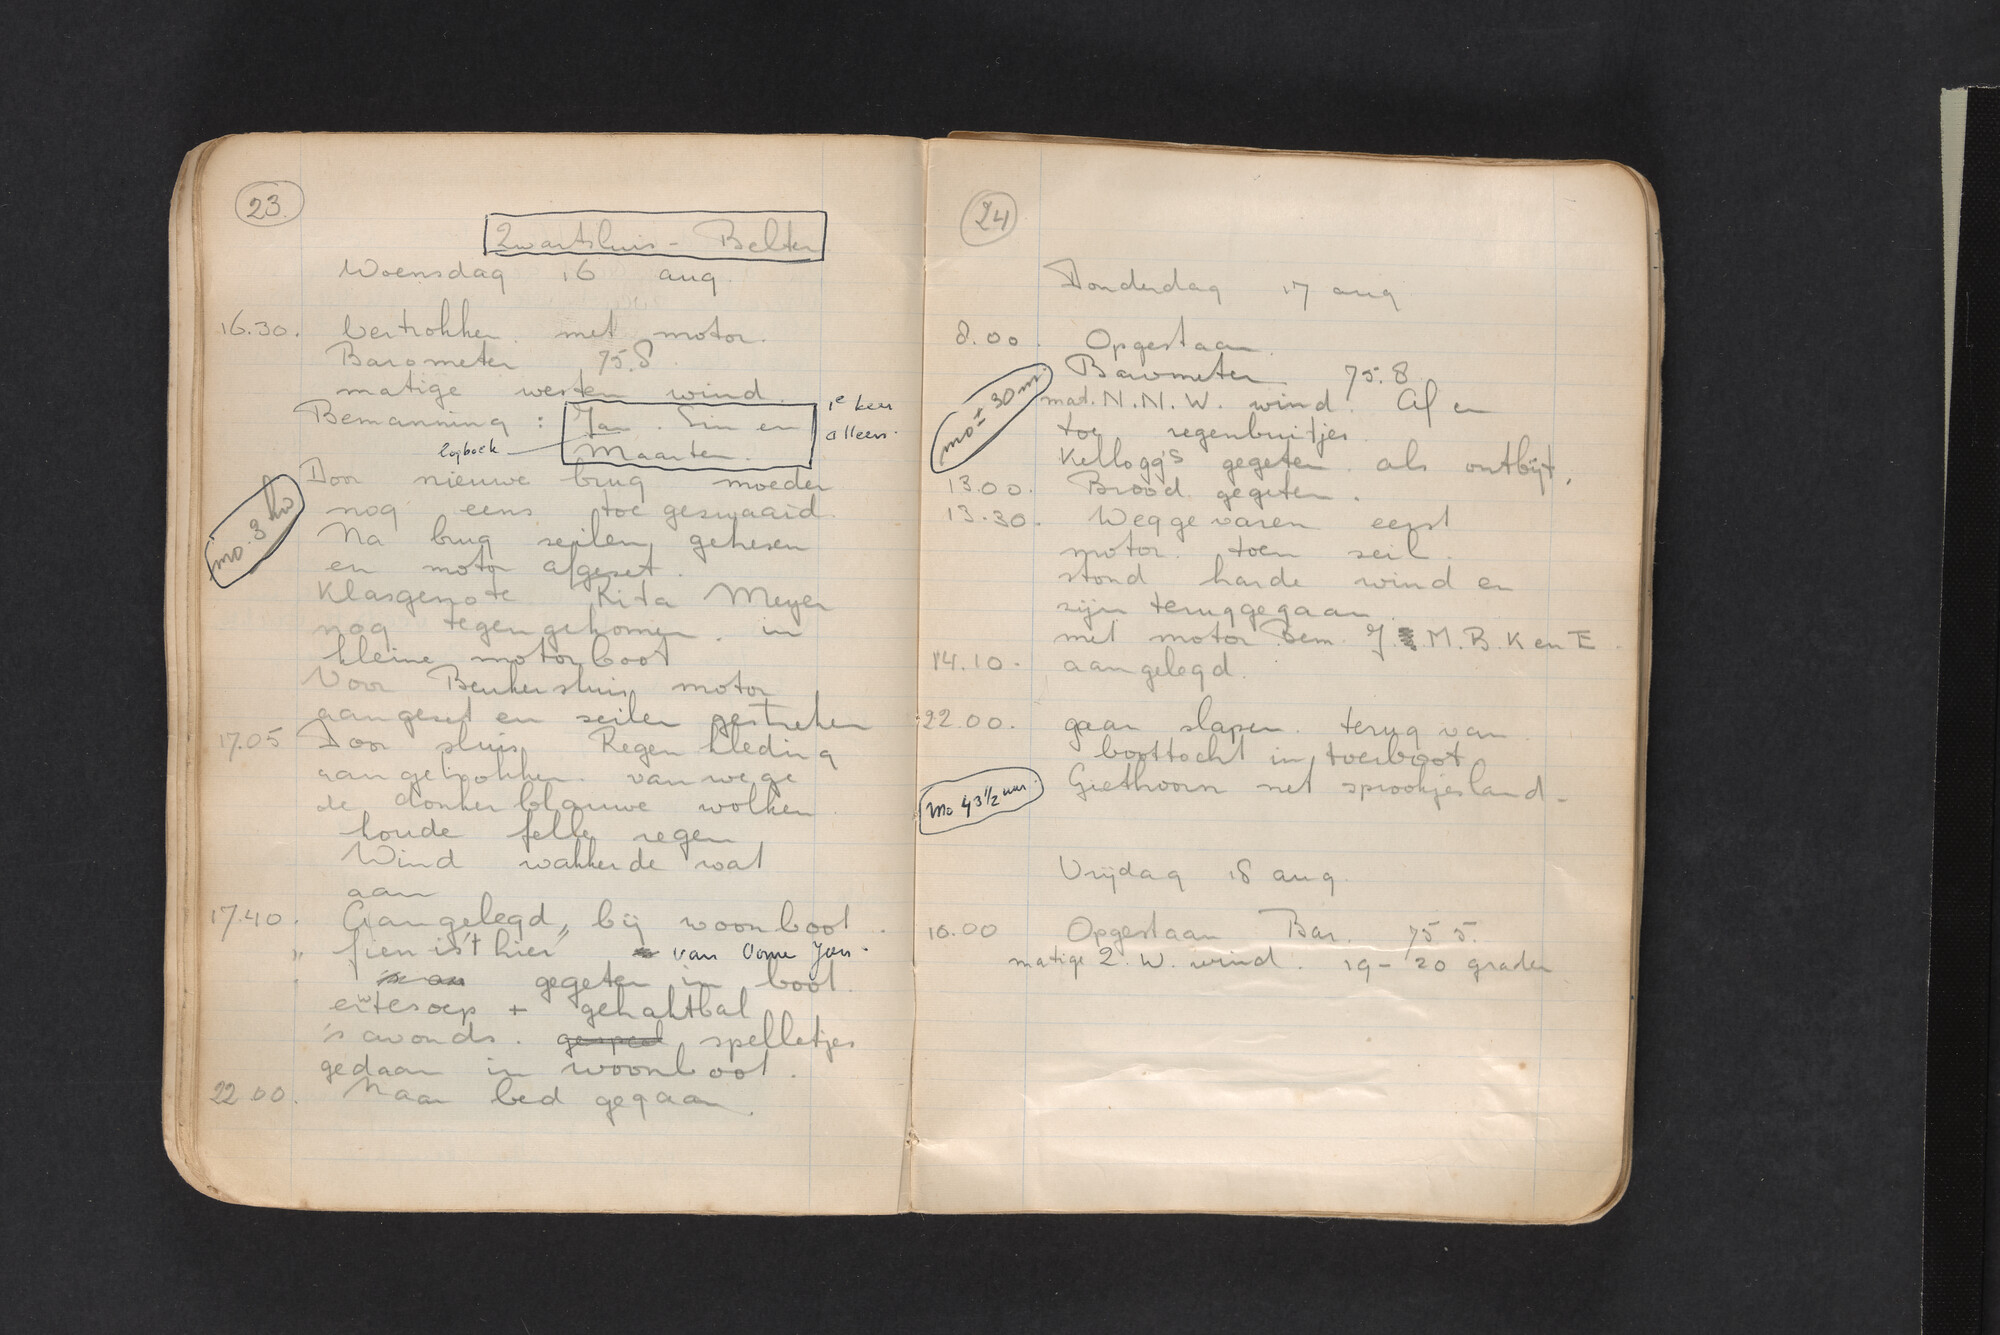 23
Zwartsluis - Belter
Woensdag 16 aug.
16.30. Vertrokken met motor.
Barometer 75.8.
matige westen wind.
Bemanning : Jan. en 1e keer
alleen.
logboek Maarten.
Door nieuwe brug moeder
mo. 3
nog eens toe geswaaid.
Na brug seilen gehesen
en motor afgeset.
Klasgenote Rita Meyer
nog tegengekomen. in
kleine motorboot
Voor Beukersluis motor
aangeset en seilen gestreken
17.05 Door sluis. Regenkleding
aangetrokken. vanwege
de donkerblauwe wolken
koude felle regen
Wind wakkerde wat
aan
17.40. Aangelegd, bij woonboot.
" fien is't hier" van Oome Jan.
gegeten in boot.
erwtesoep + gehaktbal
's avonds. spelletjes
gedaan in woonboot.
22.00. Naar bed gegaan.
24
Donderdag 17 aug
8.00 Opgestaan.
Barometer 75.8
mo ± 30 m.
mat. N.N.W. wind. Af en
toe regenbuitjes.
Kellogg's gegeten. als ontbijt.
13.00. Brood gegeten.
13.30. Weggevaren eerst
motor. toen seil.
stond harde wind en
sijn teruggegaan.
met motor. Bem. J. M. B. K en E.
14.10. aangelegd.
22.00. gaan slapen. terug van
boottocht in toerboot
Giethoorn net sprookjesland.
Mo 43 1/2 uur.
Vrijdag 18 aug.
10.00 Opgestaan Bar. 75 5.
matige Z. W. wind. 19 - 20 graden